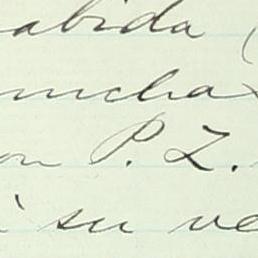 abida (
muchas
on P. Z.
à su ve